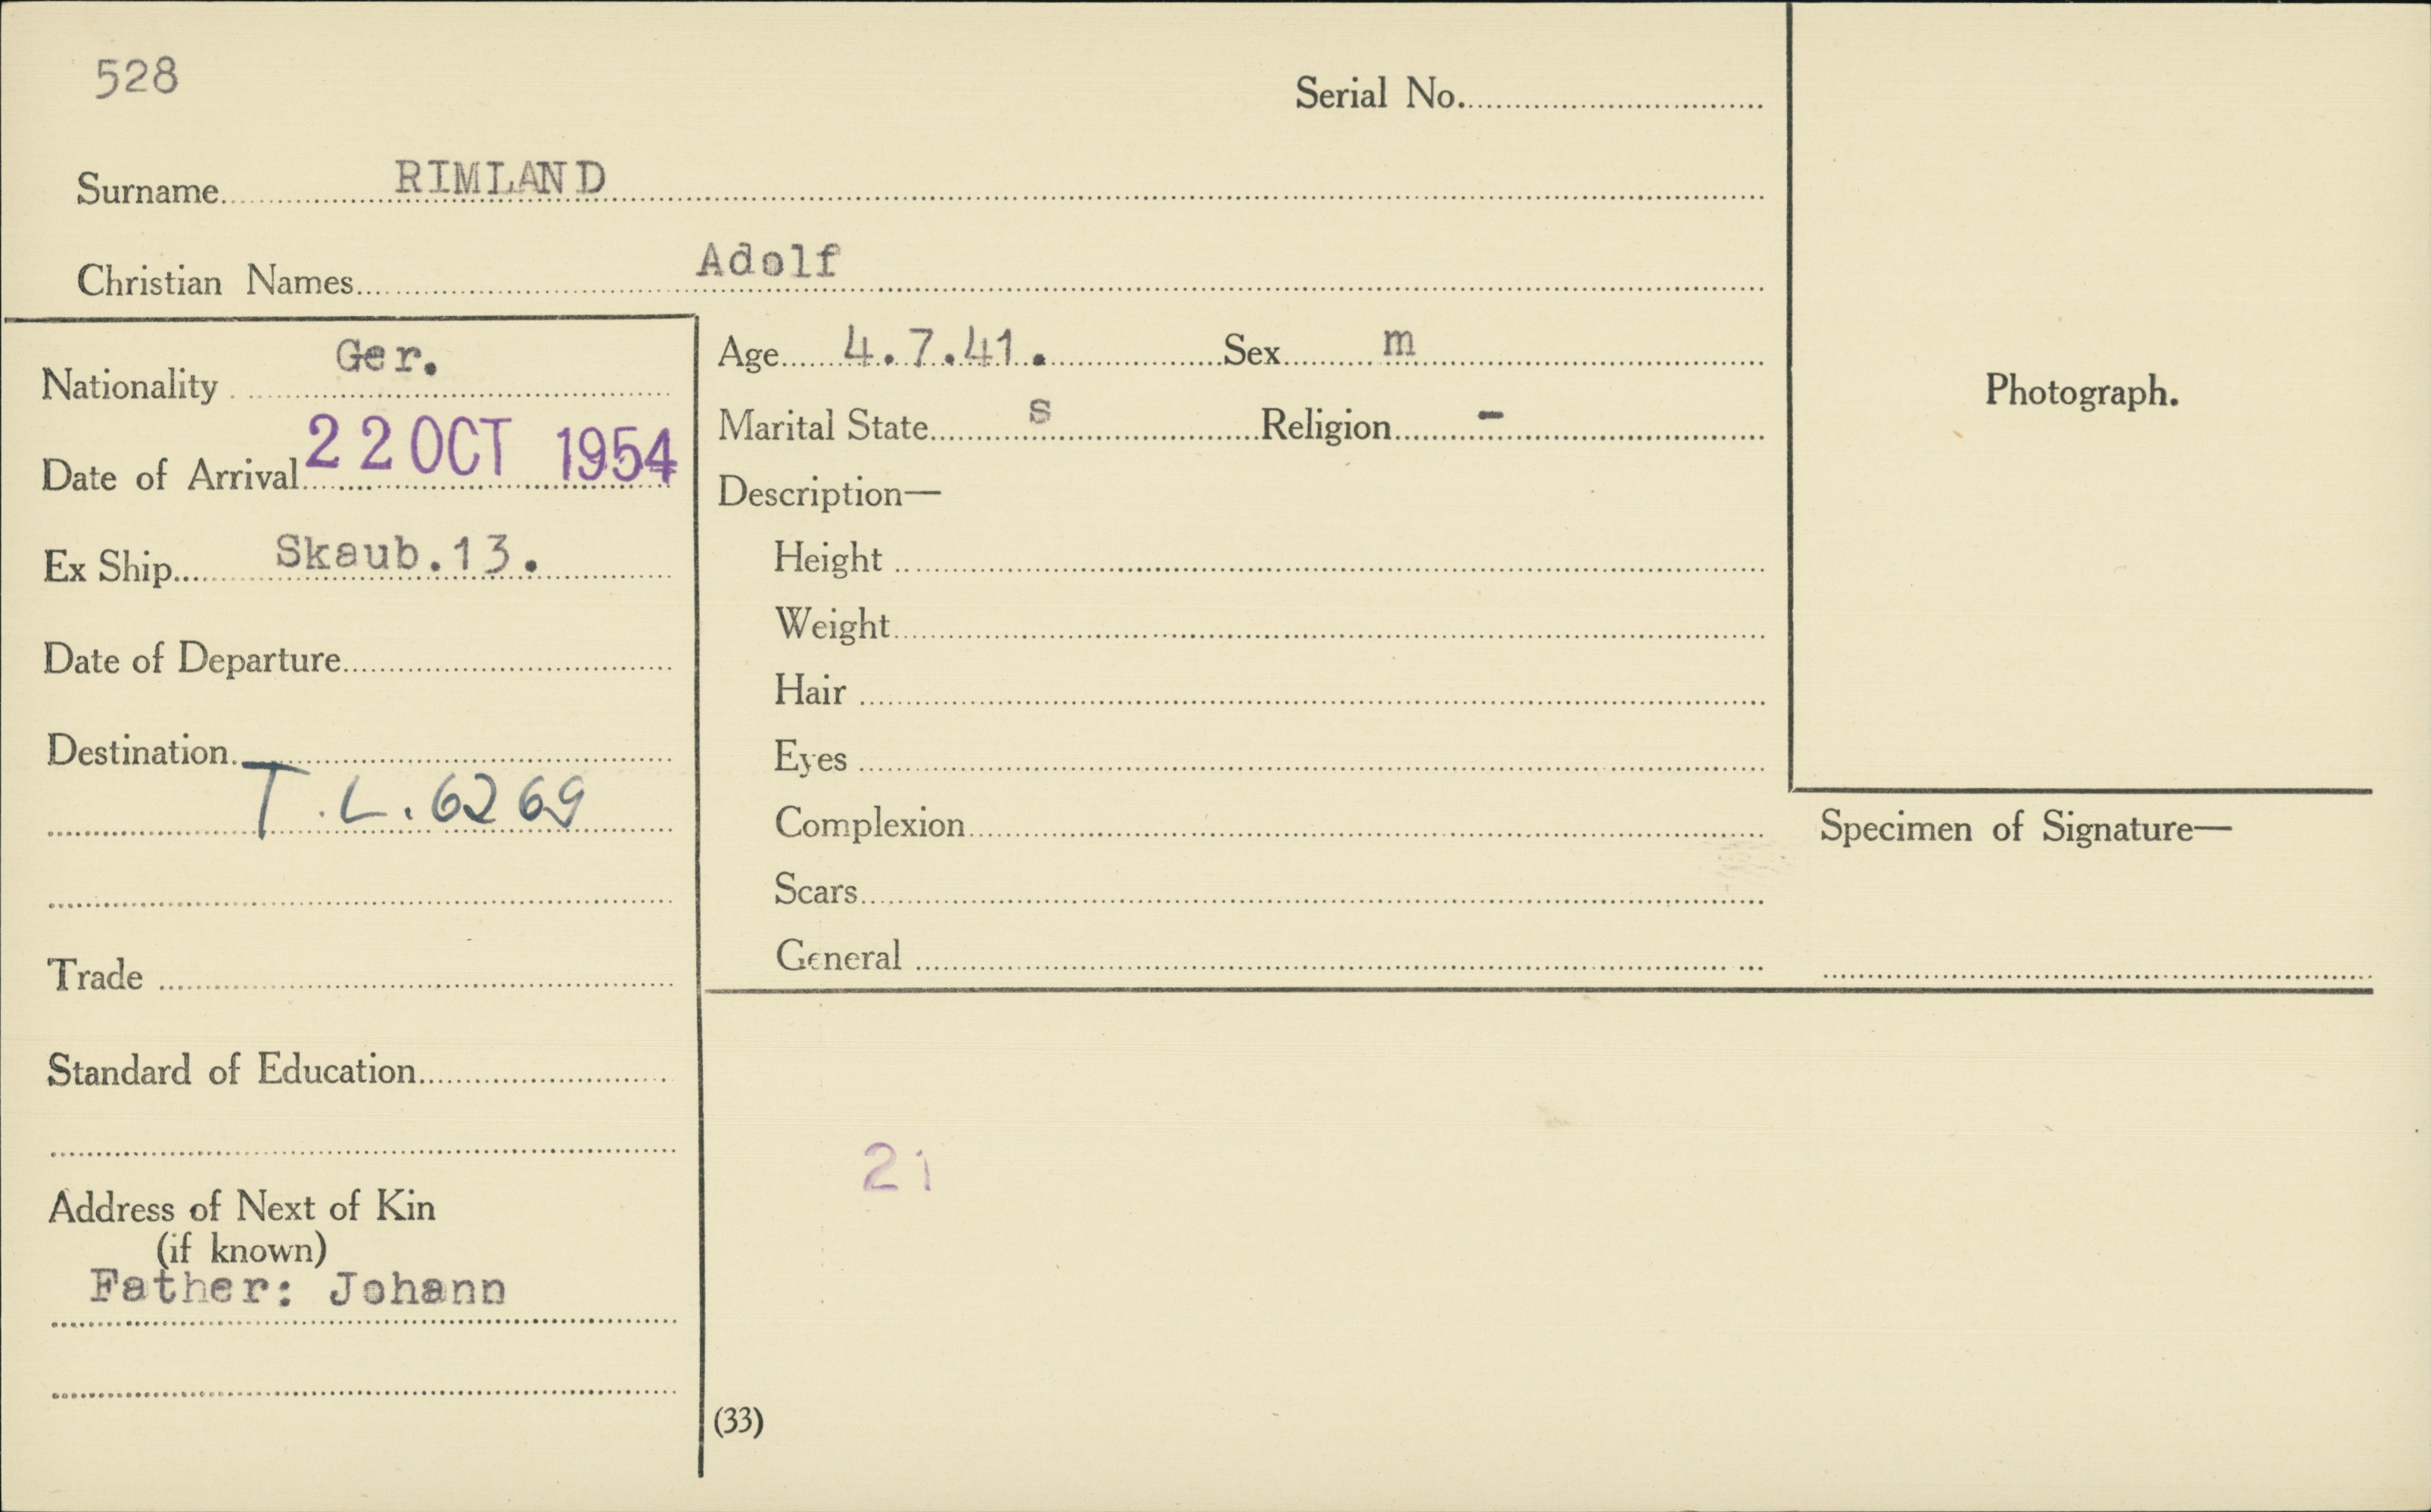 528
Serial No.
Surname RIMLAND
Christian Names Adolf
Nationality Ger.
Date of Arrival 22 OCT 1954
Ex Ship Skaub.13.
Date of Departure
Destination
T.L.6269
Trade
Standard of Education
Address of Next of Kin
(if known)
Father: Johann
Age 4.7.41. Sex m
Marital State s Religion -
Description—
Height
Weight
Hair
Eyes
Complexion
Scars
General
Photograph.
Specimen of Signature—
21
(33)